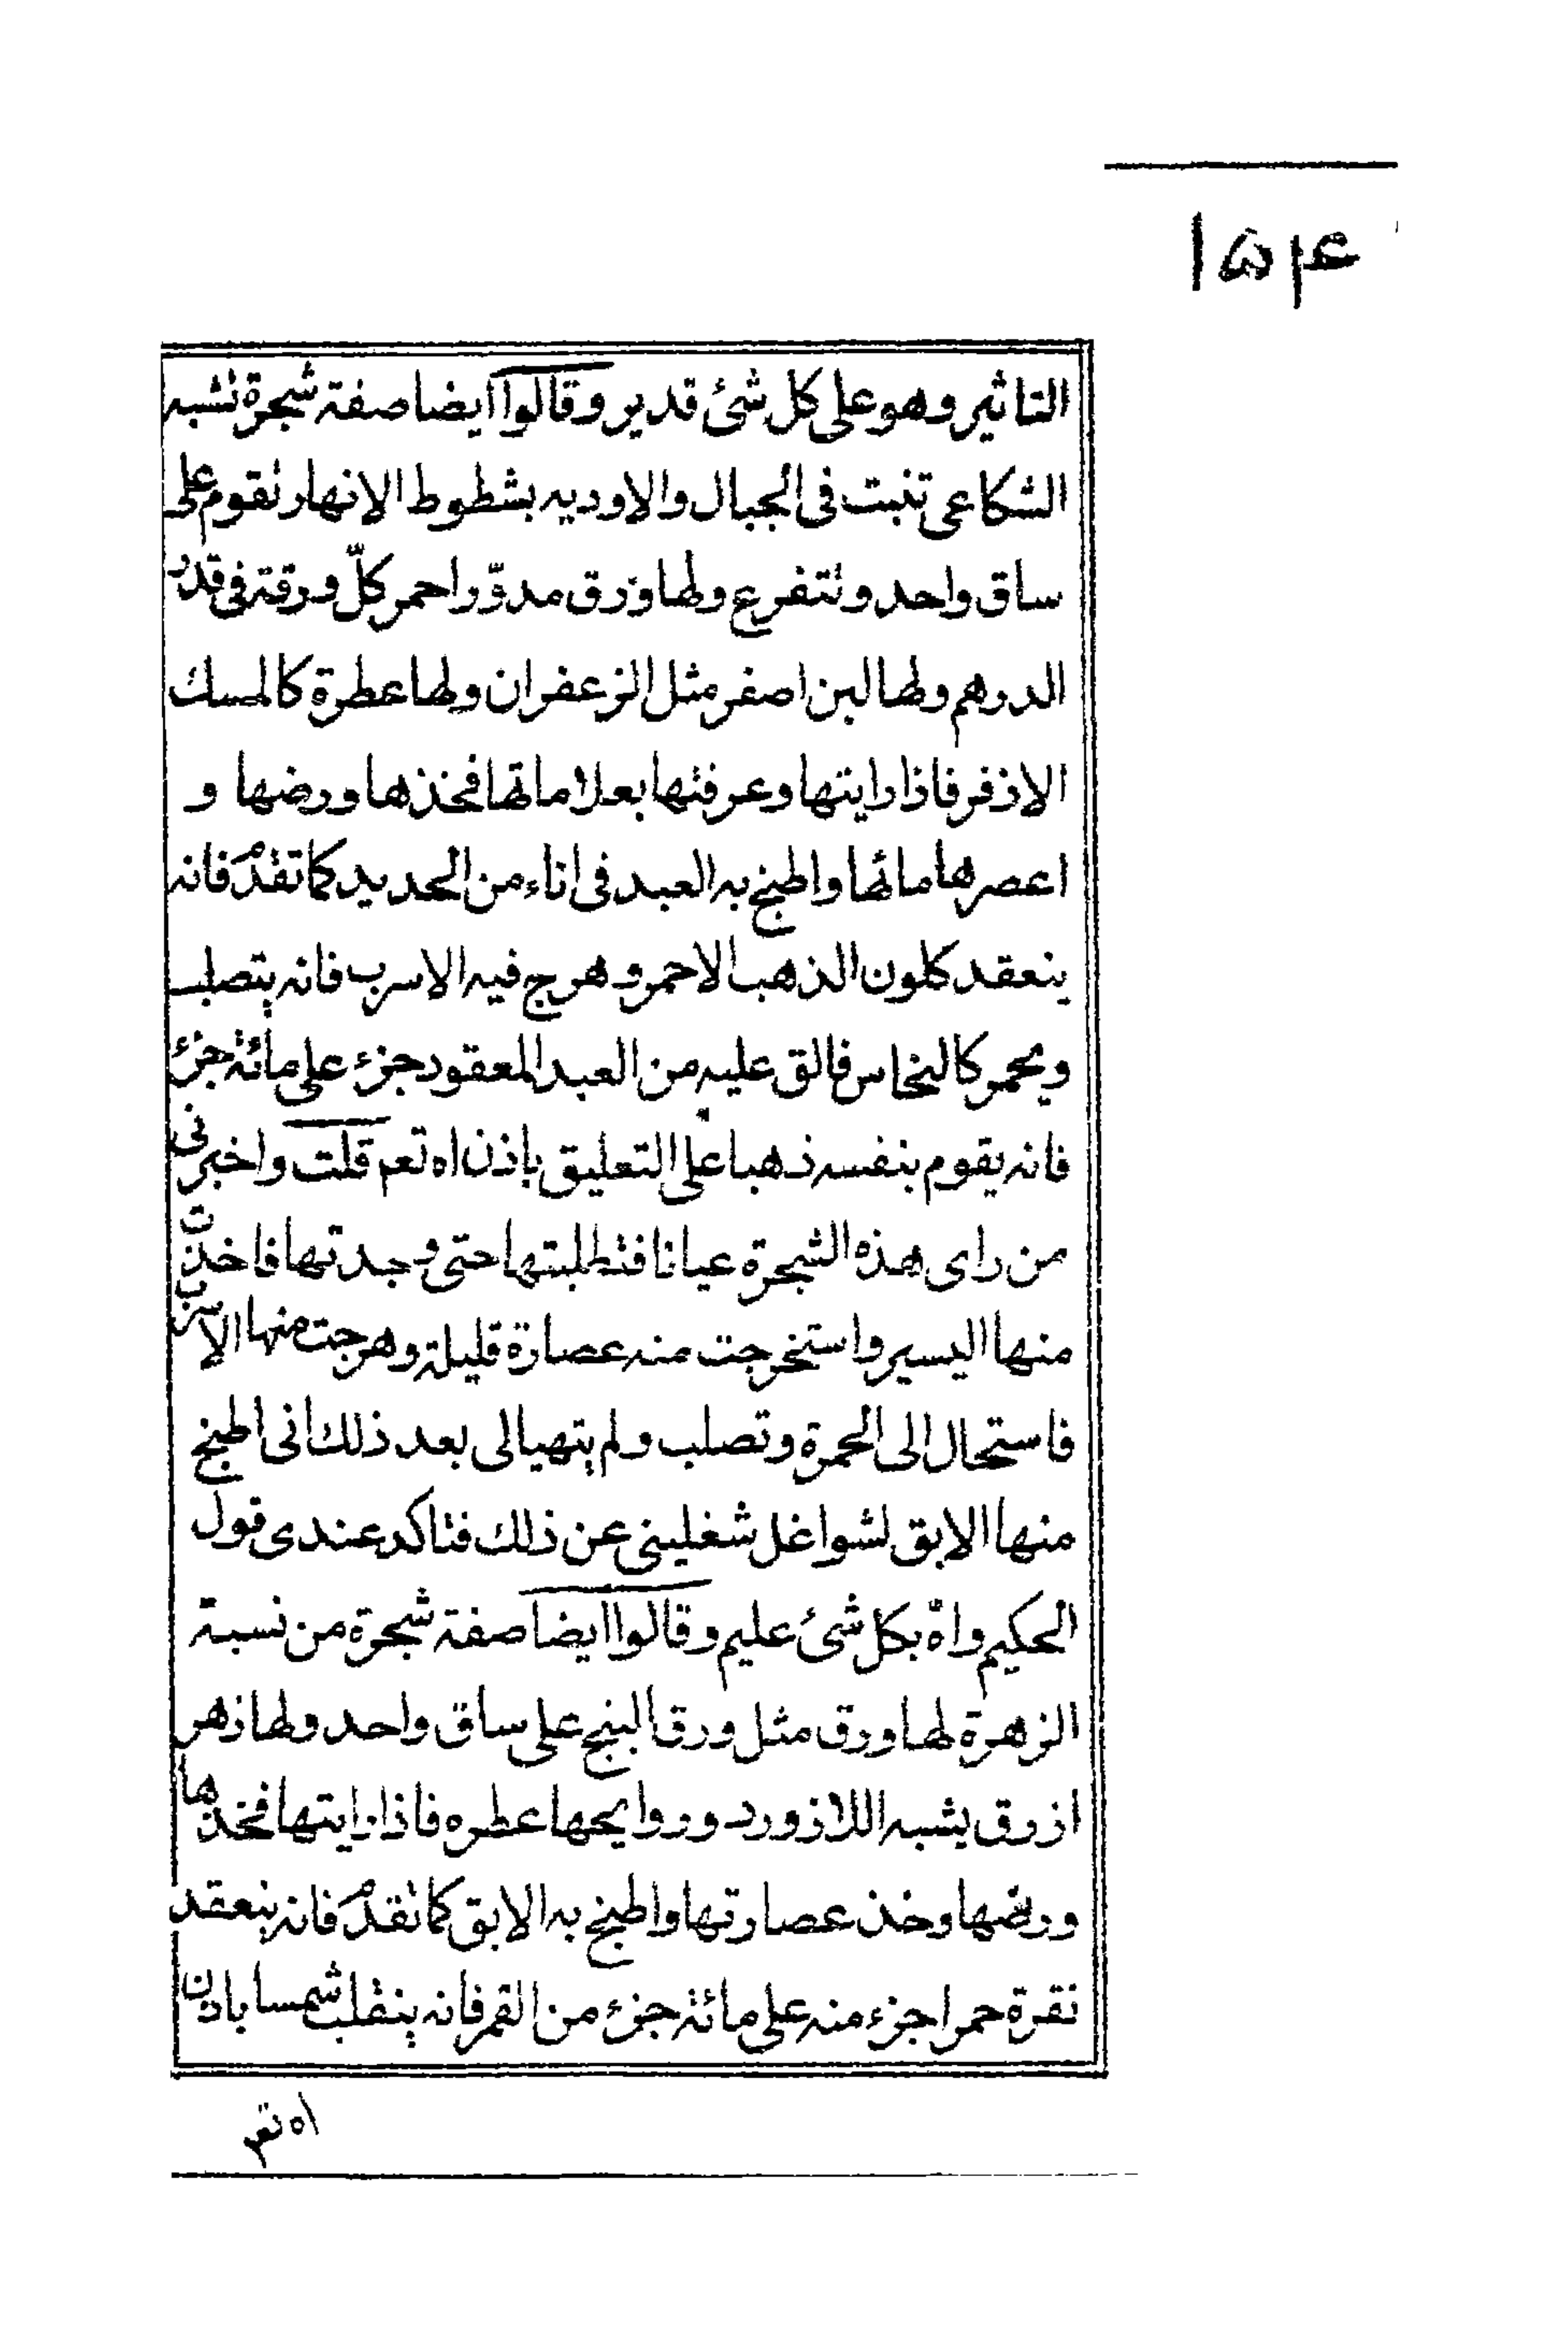 ۱۵۴
التاثير وهو على كل شئ قدير وقالوا ايضا صفة شجرة تشبه
الشكاعى تنبت فى الجبال والاوديه بشطوط الانهار تقوم على
ساق واحد وتتفرع ولها ورق مدوّر احمر كلّ ورقة فى قدر
الدرهم ولها لبن اصفر مثل الزعفران ولها عطرة كالمسك
الاذفر فاذا رايتها وعرفتها بعلاماتها فخذها ورضها و
اعصرها مائها واطبخ به العبد فى اناء من الحديد كما تقدم فانه
ينعقد كلون الذهب الاحمر وهرج فيه الاسرب فانه يتصلب
ويحمر كالنحاس فالق عليه من العبد المعقود جزء على مائة جزئ
فانه يقوم بنفسه ذهبا على التعليق باذن اه تعم قلت واخبرنى
من راى هذه الشجرة عيانا فتطلبتها حتى وجدتها فاخذت
منها اليسير واستخرجت منه عصارة قليلة وهرجت منها الاسرب
فاستحال الى الحمرة وتصلب ولم يتهيا لى بعد ذلك انى اطبخ
منها الابق لشواغل شغلينى عن ذلك فتاكد عندى قول
الحكيم واه بكل شئ عليم وقالوا ايضا صفة شجرة من نسبة
الزهرة لها ورق مثل ورق البنج على ساق واحد ولها زهر
ازرق يشبه اللازورد وروايحها عطره فاذا رايتها فخذها
ورضها وخذ عصارتها واطبخ به الابق كما تقدم فانه ينعقد
نقرة حمرا جزء منه على مائة جزء من القمر فانه ينقلب شمسا باذن
اه تعم